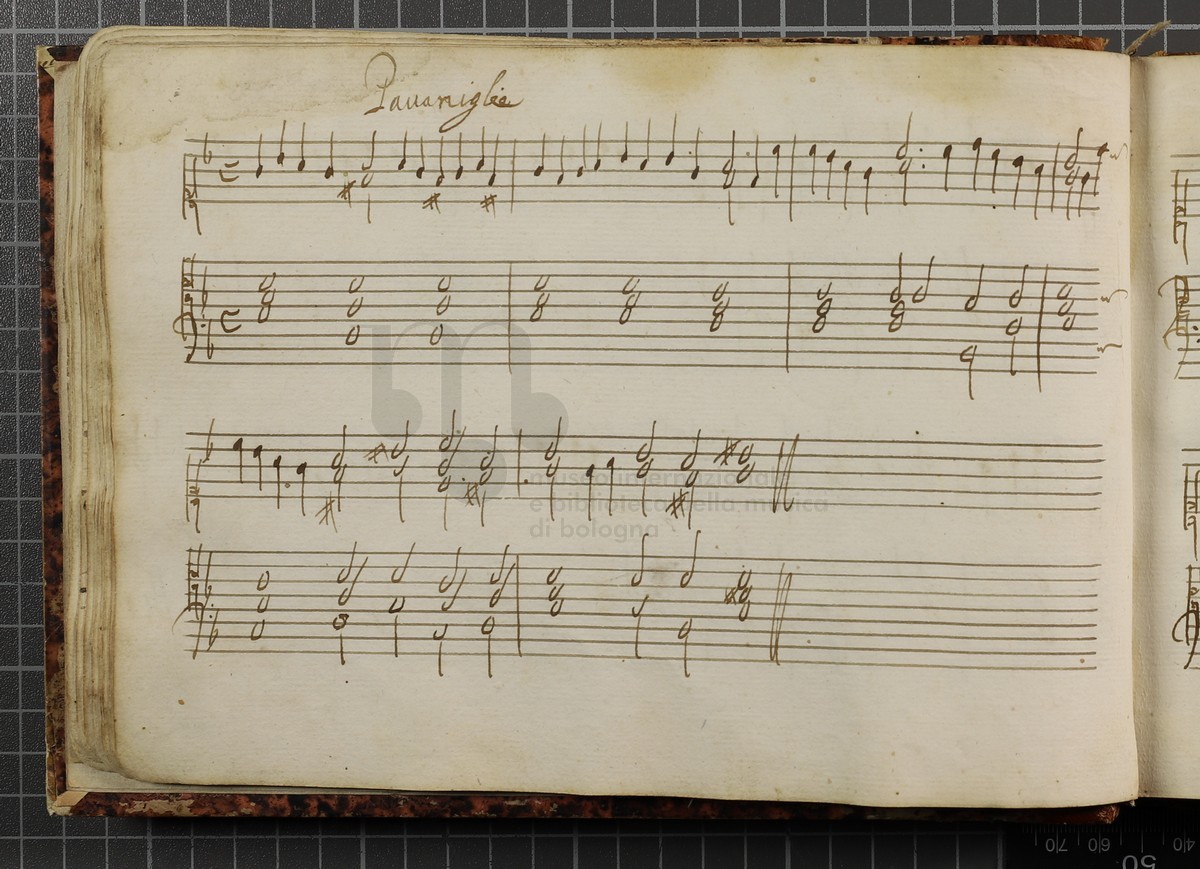 Pauaniglie
museo internazionale
e biblioteca della musica
di bologna
70 60 50 40